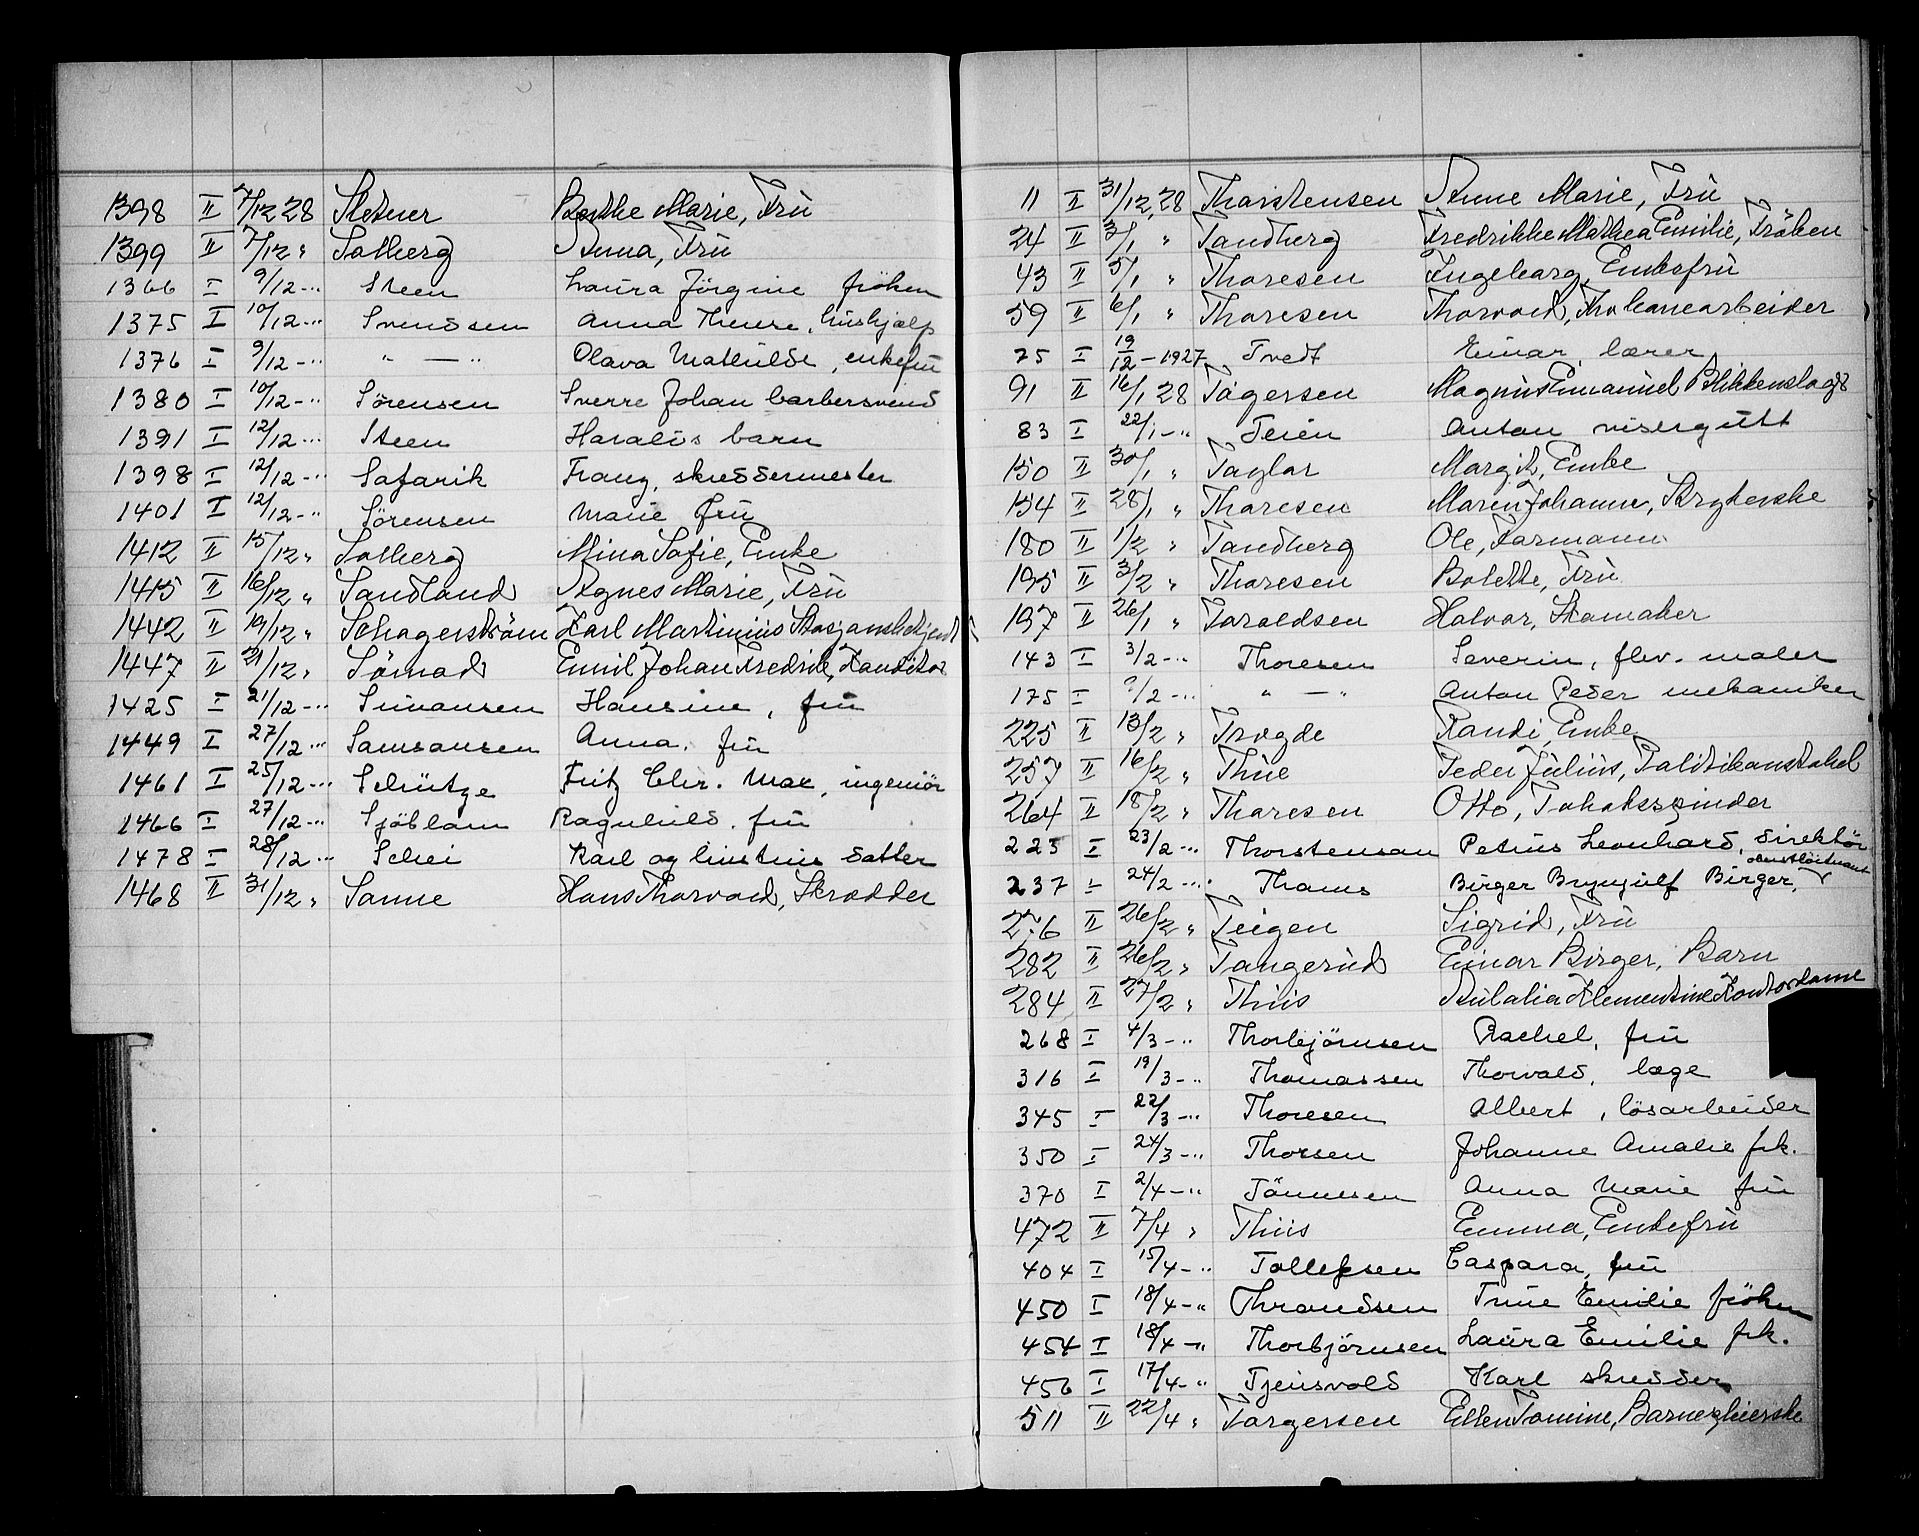 1398 II 7/12 28 Sletner Berthe Marie, Frü
1399 II 7/12 " Solberg Anna, Frü
1366 I 9/12 -" Steen Laura Jörgine fröken
1375 I 10/12 -" Svendsen Anna Therese, hushjælp
1376 I 9/12 -" " — " Olava Mathilde, enkefrü
1380 I 10/12 -" Sörensen Sverre Johan barbersvend
1391 I 12/12 -" Steen Haralds barn
1398 I 12/12 -" Safarik Franz, skreddermester
1401 I 12/12 -" Sörensen Marie frü
1412 II 15/12 " Solberg Mina Sofie, Enke
1415 II 16/12 " Sandland Agnes Marie, Frü
1442 II 19/12 " Schagerström Karl Martinius Stasjonsbetjent
1447 II 21/12 " Sömad Emil Johan Fredrik, Konditor
1425 I 21/12 -" Simonsen Hansine, frü
1449 I 27/12 -" Samsonsen Anna, frü
1461 I 25/12 -" Schütze Fritz Chr. Max, ingeniör
1466 I 27/12 -" Sjöblom Ragnhild, frü
1478 I 28/12 -" Schei Karl og hustrus datter
1468 II 31/12 " Sanne Hans Thorvald, Skrædder
11 II 31/12, 28 Thorstensen Anne Marie, Frü
24 II 3/1 " Tandberg Fredrikke Mathea Emilie, Fröken
43 II 5/1 " Thoresen Ingeborg, Enkefrü
59 II 6/1 " Thoresen Thorvald, Tobakarbeider
25 I 19/12 - 1927 Tvedt Einar, lærer
91 II 16/1 28 Tögersen Magnus Emanuel Blikkenslager
83 I 22/1 -" Teien Anton visergutt
150 II 30/1 " Taylor Margit, Enke
154 II 28/1 " Thoresen Maren Johanne, Strykerske
180 II 1/2 " Tandberg Ole, Formann
195 II 3/2 " Thoresen Bolette, Frü
197 II 26/1 " Toroldsen Halvor, Skomaker
143 I 3/2 -" Thoresen Severin, flev. maler
175 I 9/2 -" " — " Anton Peder mekaniker
225 II 13/2 " Trøgde Randi, Enke
257 II 16/2 " Thüe Peder Julius, Politikonstabel
264 II 18/2 " Thoresen Otto, Tobakspinder
223 I 23/2 -" Thorstenson Petrus Leonhard, direktör
237 I 24/2 -" Thams Birger Brynjulf Birger, oberstlöitnant
276 II 26/2 " Teigen Sigrid, Frü
282 II 26/2 " Tangerud Einar Birger, Barn
284 II 27/2 " Thiis Aulalia Klementine Kontordame
268 I 4/3 -" Thorbjörnsen Rachel, frü
316 I 19/3 -" Thomassen Thorvald, læge
345 I 22/3 -" Thoresen Albert, lösarbeider
350 I 24/3 -" Thorsen Johanne Amalie frk.
370 I 2/4 -" Tönnesen Anna Marie frü
472 II 7/4 " Thiis Emma, Enkefrü
404 I 15/4 -" Tollefsen Caspara, frü
450 I 18/4 -" Throndsen Trine Emilie fröken
454 I 18/4 -" Thorbjörnsen Laura Emilie frk.
456 I 17/4 -" Tjensvold Karl skredder
511 II 22/4 " Torgersen Ellen Tomine, Barnepleierske